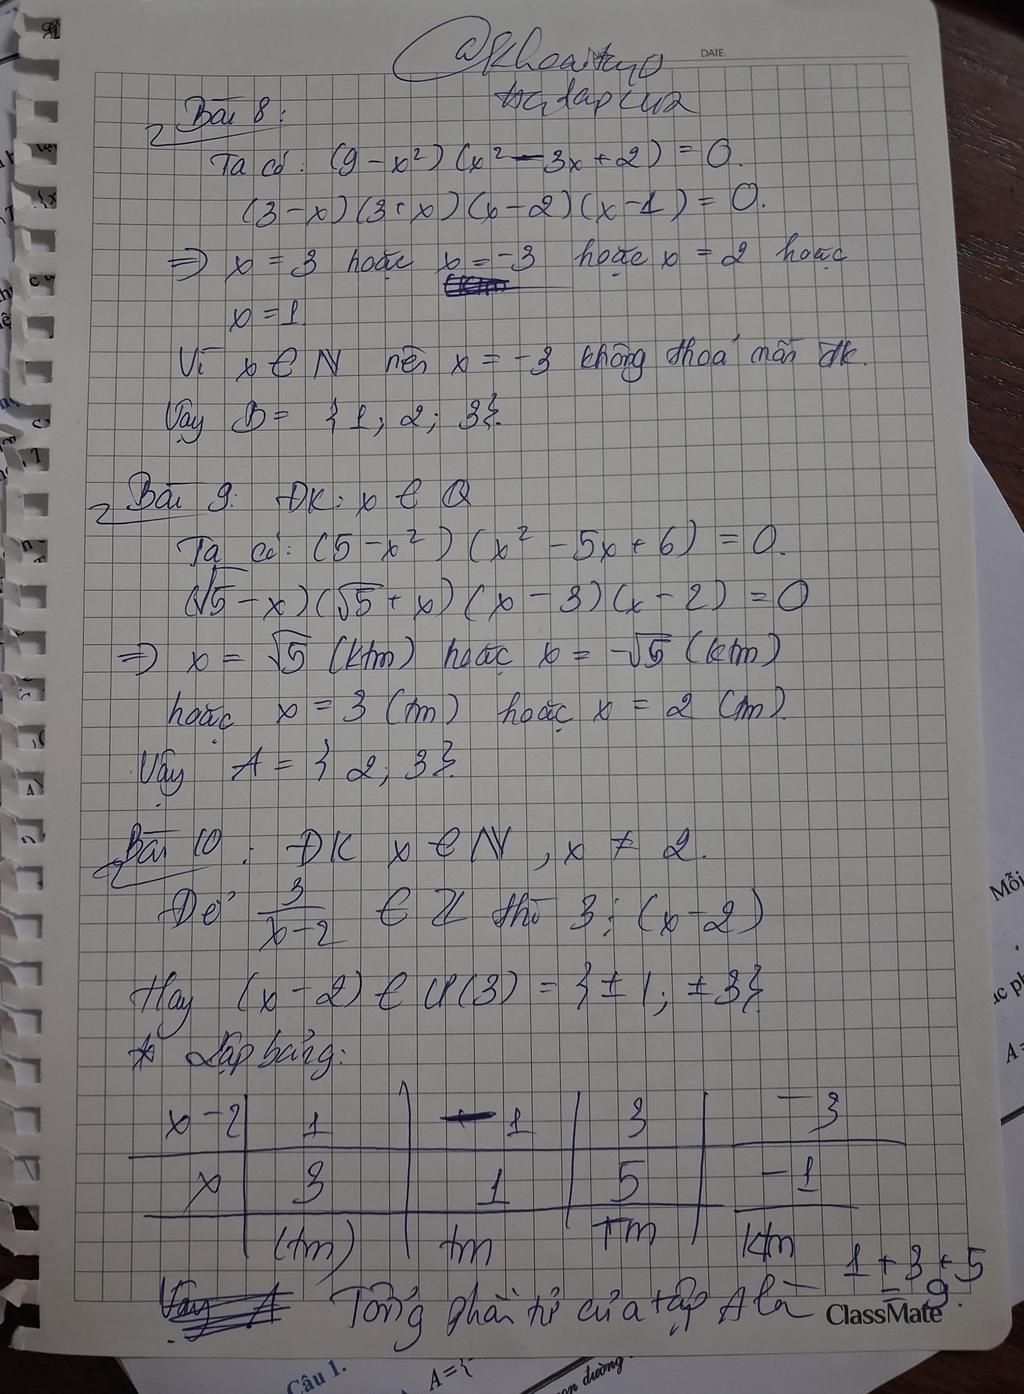 DATE.
Bài 8:
Ta có: (9-x²)(x²-3x+2) = 0.
(3-x)(3+x)(x-2)(x-1) = 0.
=> x = 3 hoặc x = -3 hoặc x = 2 hoặc
x = 1
Vì x ∈ N nên x = -3 không thoả mãn đk.
Vậy B = {1; 2; 3}.
Bài 9: ĐK: x ∈ Q
Ta có: (5-x²)(x²-5x+6) = 0.
(√5-x)(√5+x)(x-3)(x-2) = 0
=> x = √5 (ktm) hoặc x = -√5 (ktm)
hoặc x = 3 (tm) hoặc x = 2 (tm)
Vậy A = {2; 3}.
Bài 10: ĐK x ∈ N, x ≠ 2.
Để 3/(x-2) ∈ Z thì 3 ⋮ (x-2)
Hay (x-2) ∈ Ư(3) = {±1; ±3}
* Lập bảng:
x-2 1 -1 3 -3
x 3 1 5 -1
(tm) tm tm ktm
Tổng phần tử của tập A là 1+3+5
= 9.
ClassMate
Câu 1.
A={
con đường
Mỗi
A=